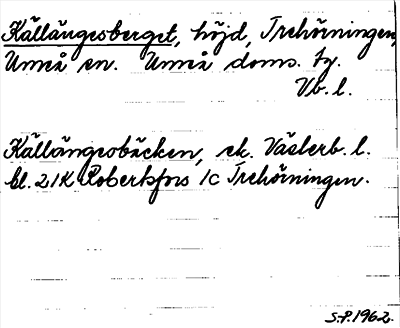 Källängesberget, höjd, Trehörningen,
Umeå sn. Umeå doms. ty.
Vb. l.
Källängesbäcken, ek. Västerb. l.
bl. 21K Robertsfors 1c Trehörningen.
S.P. 1962.